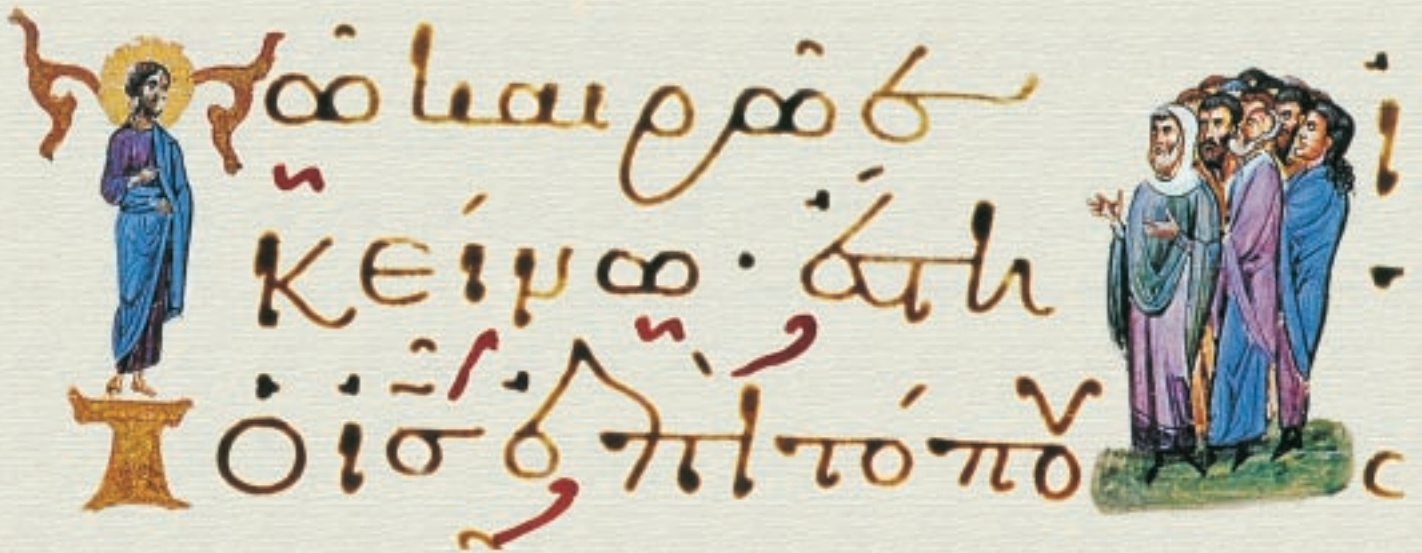 Τῶ καιρῶ ἐ
κείνω · ἔστη
ὁ ἰσ ἐπὶ τόπου